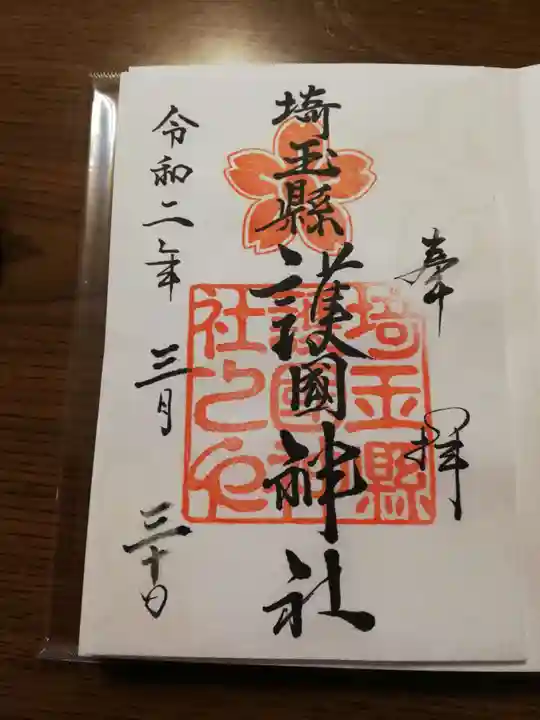 奉拝
埼玉縣護國神社
埼玉縣
護國神
社之印
令和二年三月三十日